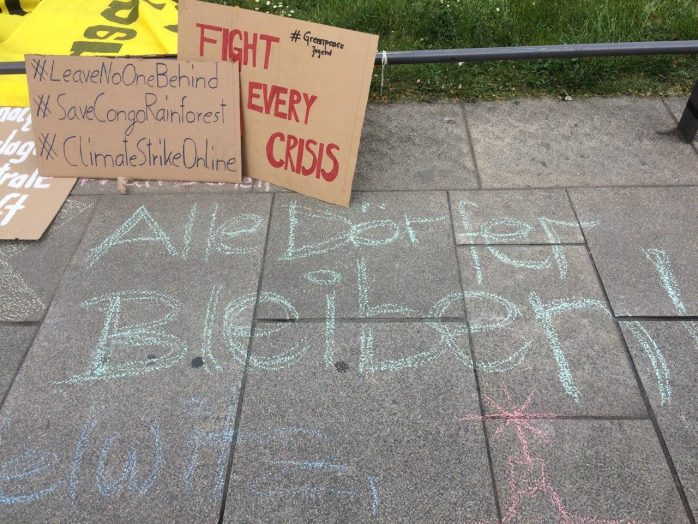 #LeaveNoOneBehind
#SaveCongoRainforest
#ClimateStrikeOnline
#Greenpeace
Jugend
FIGHT
EVERY
CRISIS
Alle Dörfer
Bleiben!